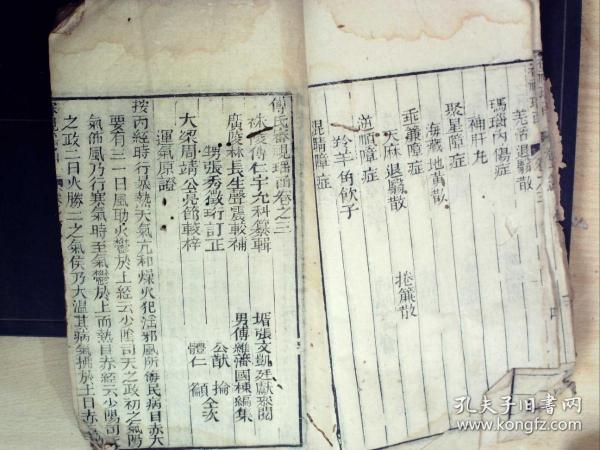 羌活退翳散
瑪瑙內傷症
補肝丸
聚星障症
海藏地黃散
垂簾障症
天麻退翳散
捲簾散
逆順障症
羚羊角飲子
混睛障症
傅氏審視瑤函卷之三
秣陵傅仁宇允科纂輯
廣陵林長生聲震較補
甥張秀徵訂正
大梁周靖公亮節較梓
壻張文凱廷獻叅閱
男傅維藩國棟編集
運氣原證
按內經時行暴熱天氣亢和燥火犯淫邪風所淹民病目赤大
要有三一曰風助火鬱於上經云少陰司天之政初之氣陽
氣布風乃行寒氣時至氣鬱於上而熱目赤經云少陽司天
之政二曰火勝二之氣候乃大溫其病氣怫於上目赤
孔夫子旧书网